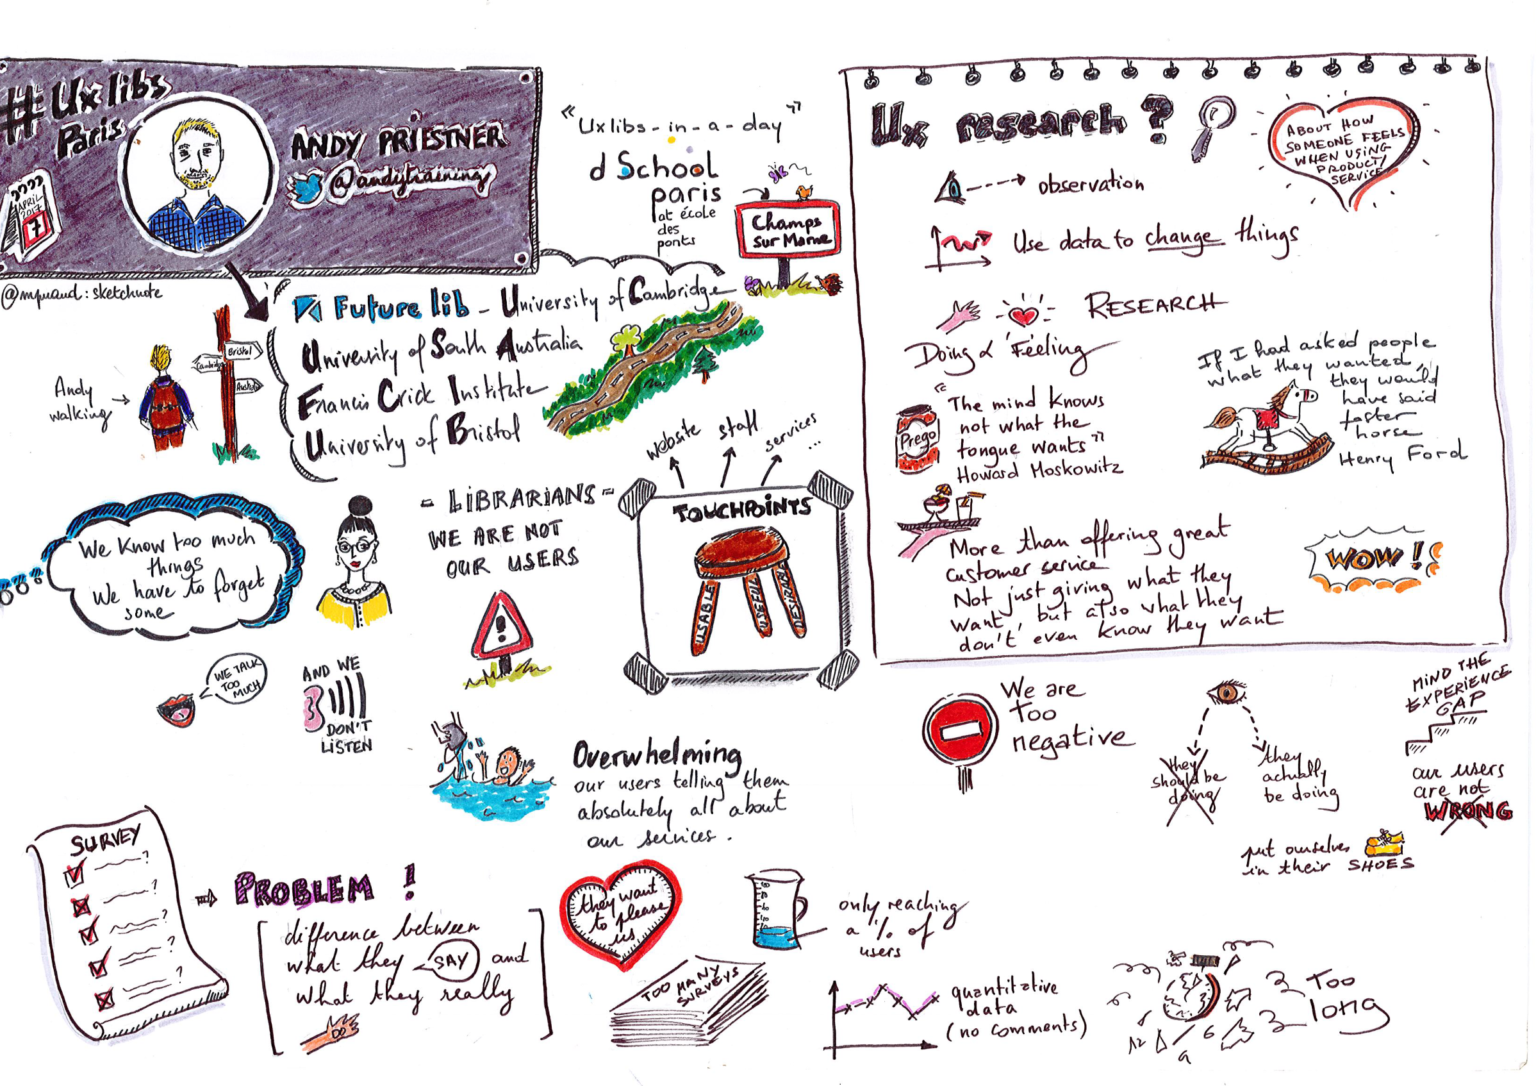 #Uxlibs
Paris
ANDY PRIESTNER
@andytraining
APRIL
2017
7
@mpuaud: sketchnote
"Uxlibs-in-a-day"
d School
paris
at école
des
ponts
Champs
sur Marne
Future lib - University of Cambridge
University of South Australia
Francis Crick Institute
University of Bristol
Andy
walking
Bristol
Cambridge
We know too much
things
We have to forget
some
- LIBRARIANS -
WE ARE NOT
OUR USERS
WE TALK
TOO
MUCH
AND WE
DON'T
LISTEN
website
staff
services
...
TOUCHPOINTS
USABLE
USEFUL
DESIRABLE
Overwhelming
our users telling them
absolutely all about
our services.
SURVEY
?
?
?
?
?
PROBLEM !
difference between
what they SAY and
what they really
they want
to please
us
TOO MANY
SURVEYS
only reaching
a % of
users
quantitative
data
(no comments)
Too
long
12
6
9
Ux research?
ABOUT HOW
SOMEONE FEELS
WHEN USING
PRODUCT/
SERVICE
observation
Use data to change things
RESEARCH
Doing & Feeling
Prego
"The mind knows
not what the
tongue wants"
Howard Moskowitz
If I had asked people
what they wanted,
they would
have said
faster
horse
Henry Ford
More than offering great
customer service
Not just giving what they
want, but also what they
don't even know they want
WOW!
We are
Too
negative
they
should be
doing
they
actually
be doing
MIND THE
EXPERIENCE
GAP
our users
are not
WRONG
put ourselves
in their SHOES